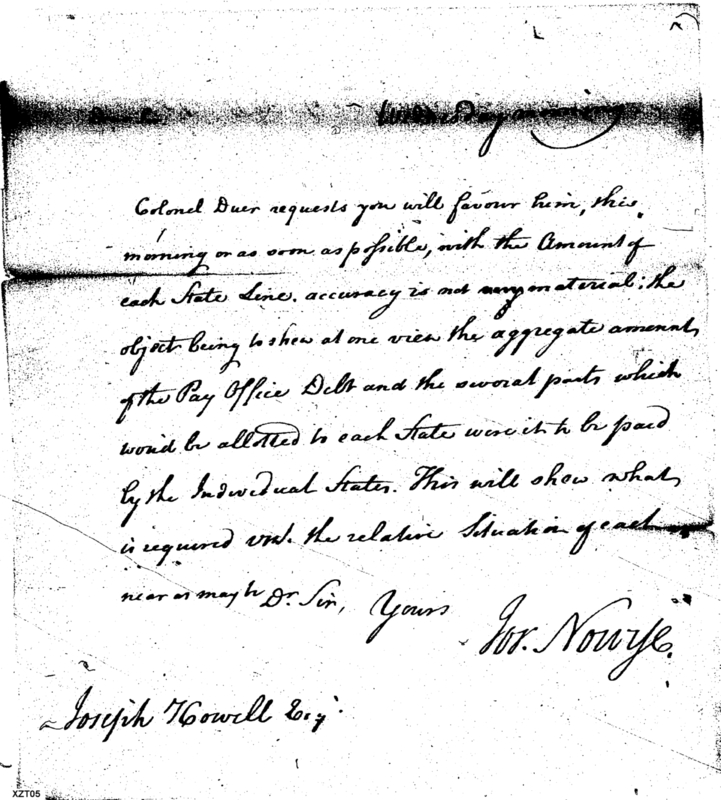 Wednesday morning
Colonel Duer requests you will favour him, this
morning or as soon as possible, with the Amount of
each State Line. accuracy is not very material; the
object being to shew at one view the aggregate amount,
of the Pay Office Debt and the several parts which
would be allotted to each State were it to be paid
by the Individual States. This will shew what,
is required vizt. the relative Situation of each as
near as may be Dr. Sir, Yours
Jos. Nourse.
Joseph Howell Esqr.
XZT05